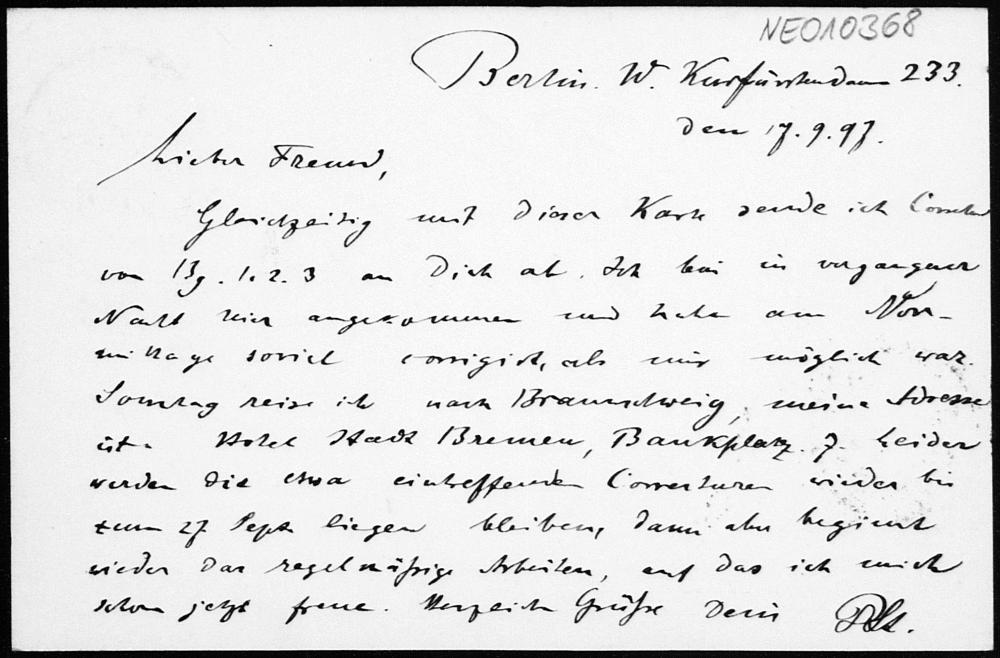 NEO10368
Berlin. W. Kurfürstendamm 233.
den 17.9.97.
Lieber Freund,
Gleichzeitig mit dieser Karte sende ich
von Bg. 1. 2. 3 an Dich ab. Ich bin in vergangener
Nacht hier angekommen und habe am Vor-
mittage soviel corrigirt, als mir möglich war.
Sonntag reise ich nach Braunschweig, meine Adresse
ist. Hotel Stadt Bremen, Bankplatz. 7. Leider
werden die etwa eintreffenden Correcturen wieder bis
zum 27 Sept. liegen bleiben, dann aber beginnt
wieder das regelmäßige Arbeiten, auf das ich mich
schon jetzt freue. Herzliche Grüße Dein PSt.